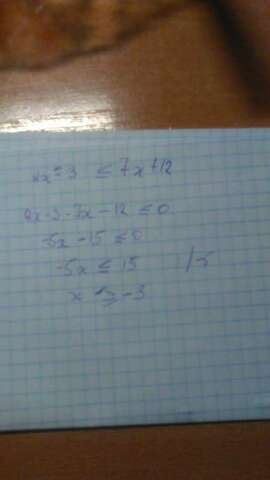 2x - 3 ≤ 7x + 12
2x - 3 - 7x - 12 ≤ 0
-5x - 15 ≤ 0
-5x ≤ 15 |:-5
x ≥ -3